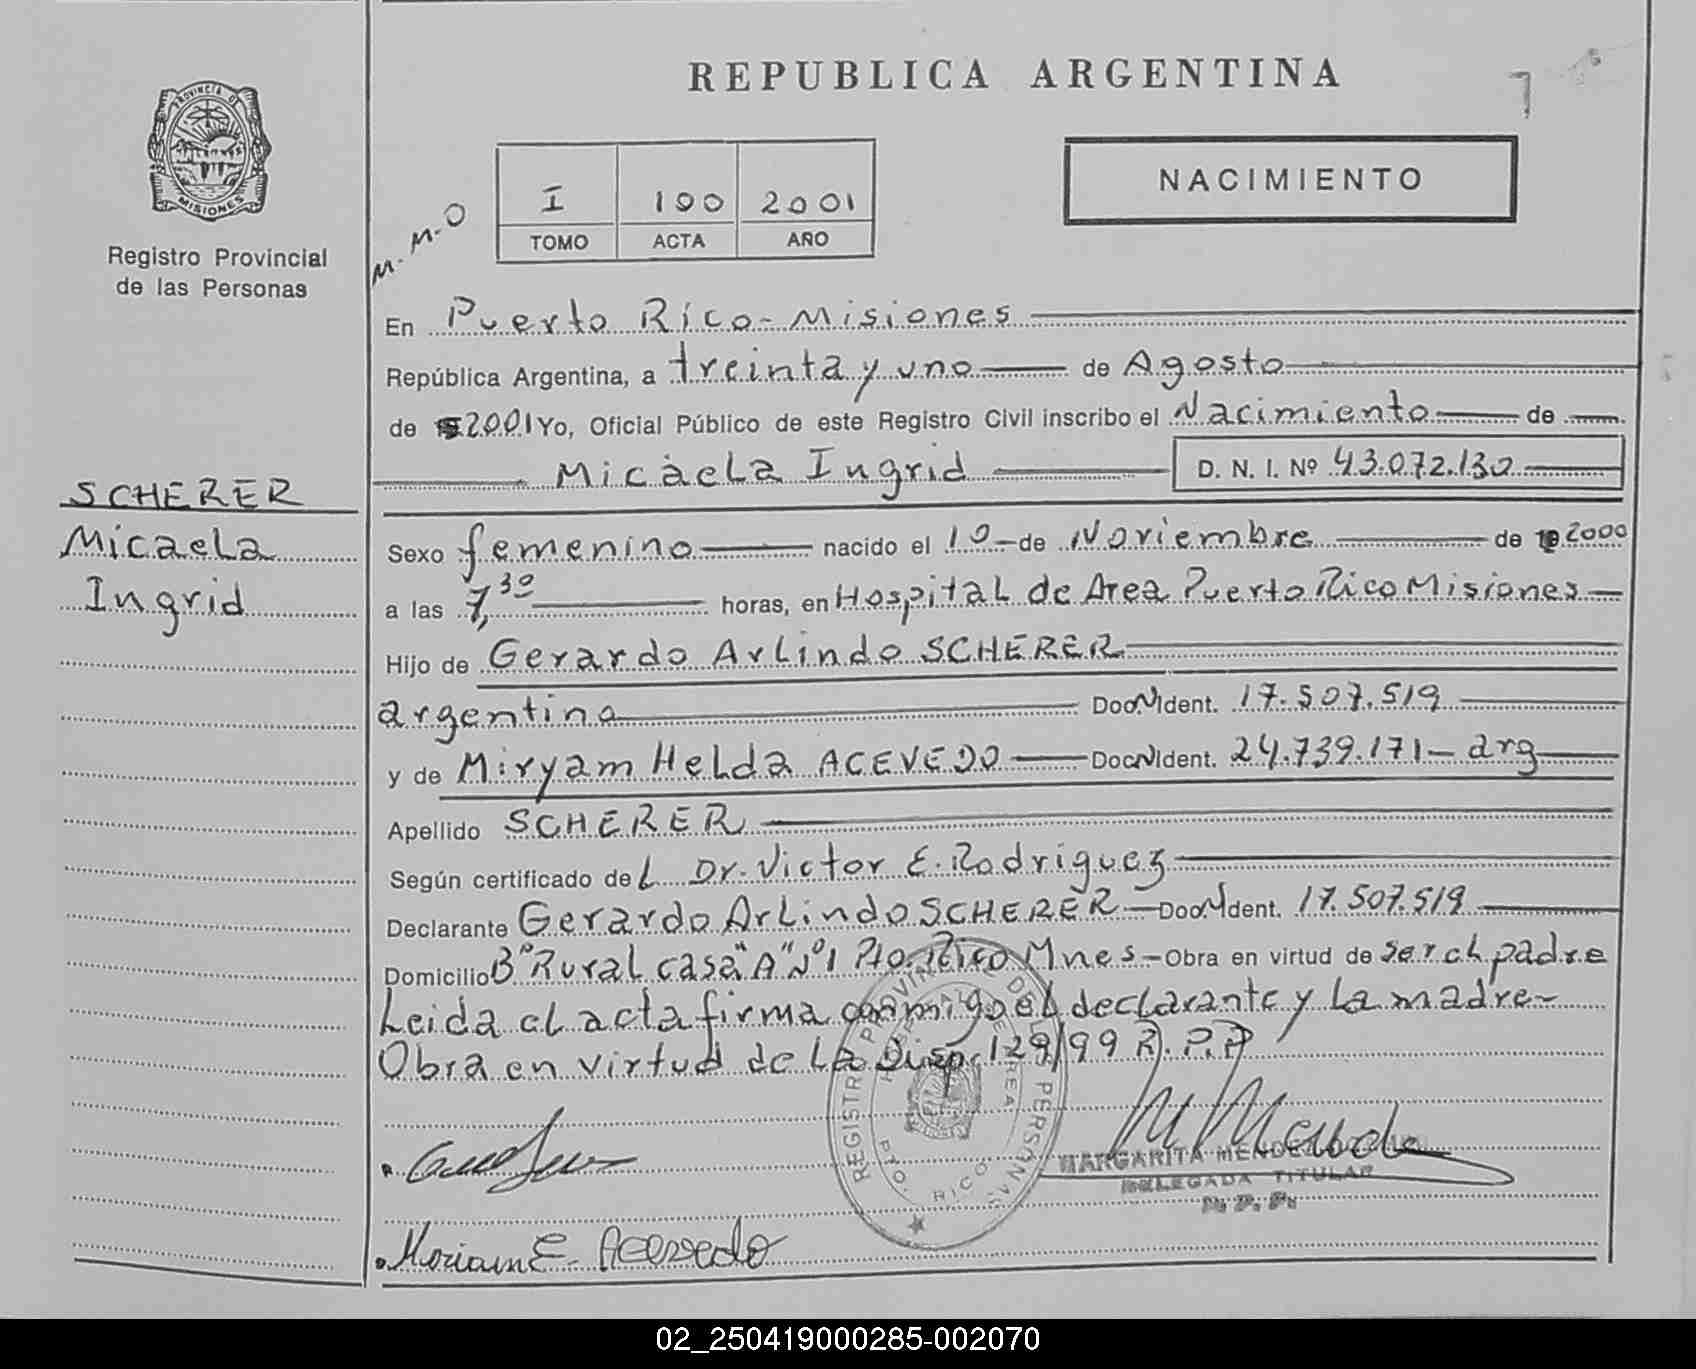 REPUBLICA ARGENTINA
7
PROVINCIA DE
MISIONES
Registro Provincial
de las Personas
M-M-O
I 100 2001
TOMO ACTA AÑO
NACIMIENTO
En Puerto Rico-Misiones
República Argentina, a treinta y uno de Agosto
de 2001 Yo, Oficial Público de este Registro Civil inscribo el Nacimiento de
Micaela Ingrid D. N. I. Nº 43.072.130
SCHERER
Micaela
Ingrid
Sexo femenino nacido el 10 de Noviembre de 2000
a las 7,30 horas, en Hospital de Area Puerto Rico Misiones
Hijo de Gerardo Arlindo SCHERER
argentino Doc. N Ident. 17.507.519
y de Miryam Helda ACEVEDO Doc. N Ident. 24.739.171- arg
Apellido SCHERER
Según certificado del Dr. Victor E. Rodriguez
Declarante Gerardo Arlindo SCHERER Doc. N Ident. 17.507.519
Domicilio Bº Rural casa "A" Nº1 Pto. Rico Mnes - Obra en virtud de ser el padre
Leida el acta firma conmigo el declarante y La madre-
Obra en virtud de La Disp. 129/99 R.P.P
REGISTRO PROVINCIAL DE LAS PERSONAS
PTO. RICO
MARGARITA MENDEZ
DELEGADA TITULAR
R. P. P.
Moriam E. Acevedo
02_250419000285-002070